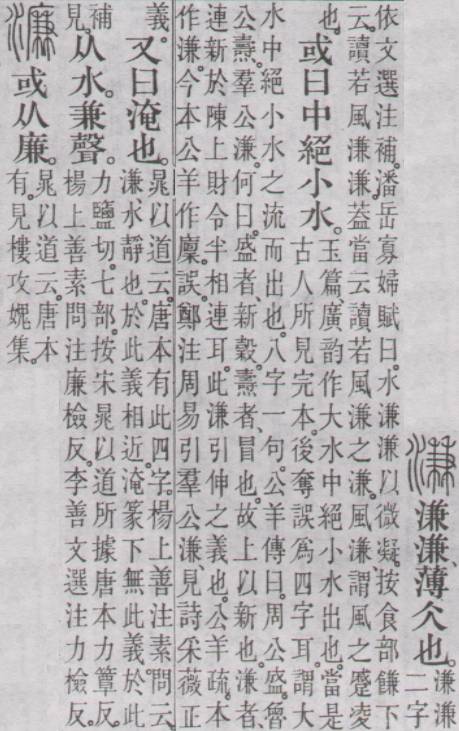 溓 溓溓、薄仌也。溓溓二字
依文選注補。潘岳寡婦賦曰。水溓溓以微凝。按食部䭑下
云。讀若風溓溓。葢當云讀若風溓之溓。風溓、謂風之蹙凌
也。或曰中絕小水。玉篇、廣韵作大水中絕小水出也。當是
古人所見完本。後奪誤爲四字耳。謂大
水中絕小水之流而出也。八字一句。公羊傳曰。周公盛。魯
公燾。羣公溓。何曰。盛者、新穀。燾者、冒也。故上以新也。溓者、
連新於陳上。財令半相連耳。此溓引伸之義也。公羊疏。本
作溓。今本公羊作廩。誤。鄭注周易引羣公溓、見詩采薇正
義。又曰淹也。晁以道云。唐本有此四字。楊上善注素問云、
溓、水靜也。於此義相近。淹篆下無此義。於此
補見。从水。兼聲。力鹽切。七部。按宋晁以道所據唐本力簟反。
楊上善素問注廉檢反。李善文選注力檢反。
濂 或从廉。晁以道云。唐本
有。見樓攻媿集。